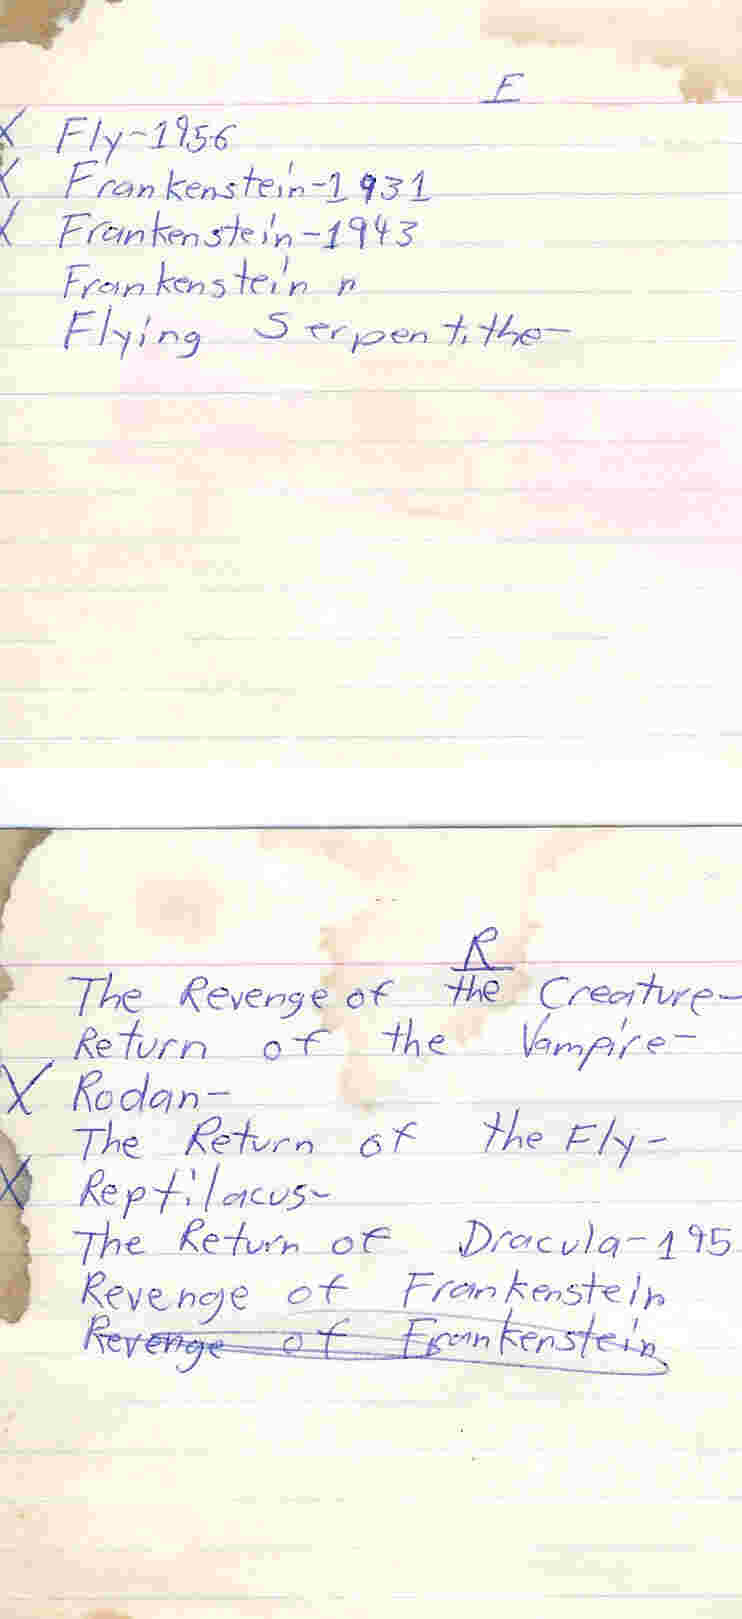 F
X Fly-1956
X Frankenstein-1931
X Frankenstein-1943
Frankenstein n
Flying Serpent, the-
R
The Revenge of the Creature-
Return of the Vampire-
X Rodan-
The Return of the Fly-
X Reptilacus-
The Return of Dracula-195
Revenge of Frankenstein
Revenge of Frankenstein